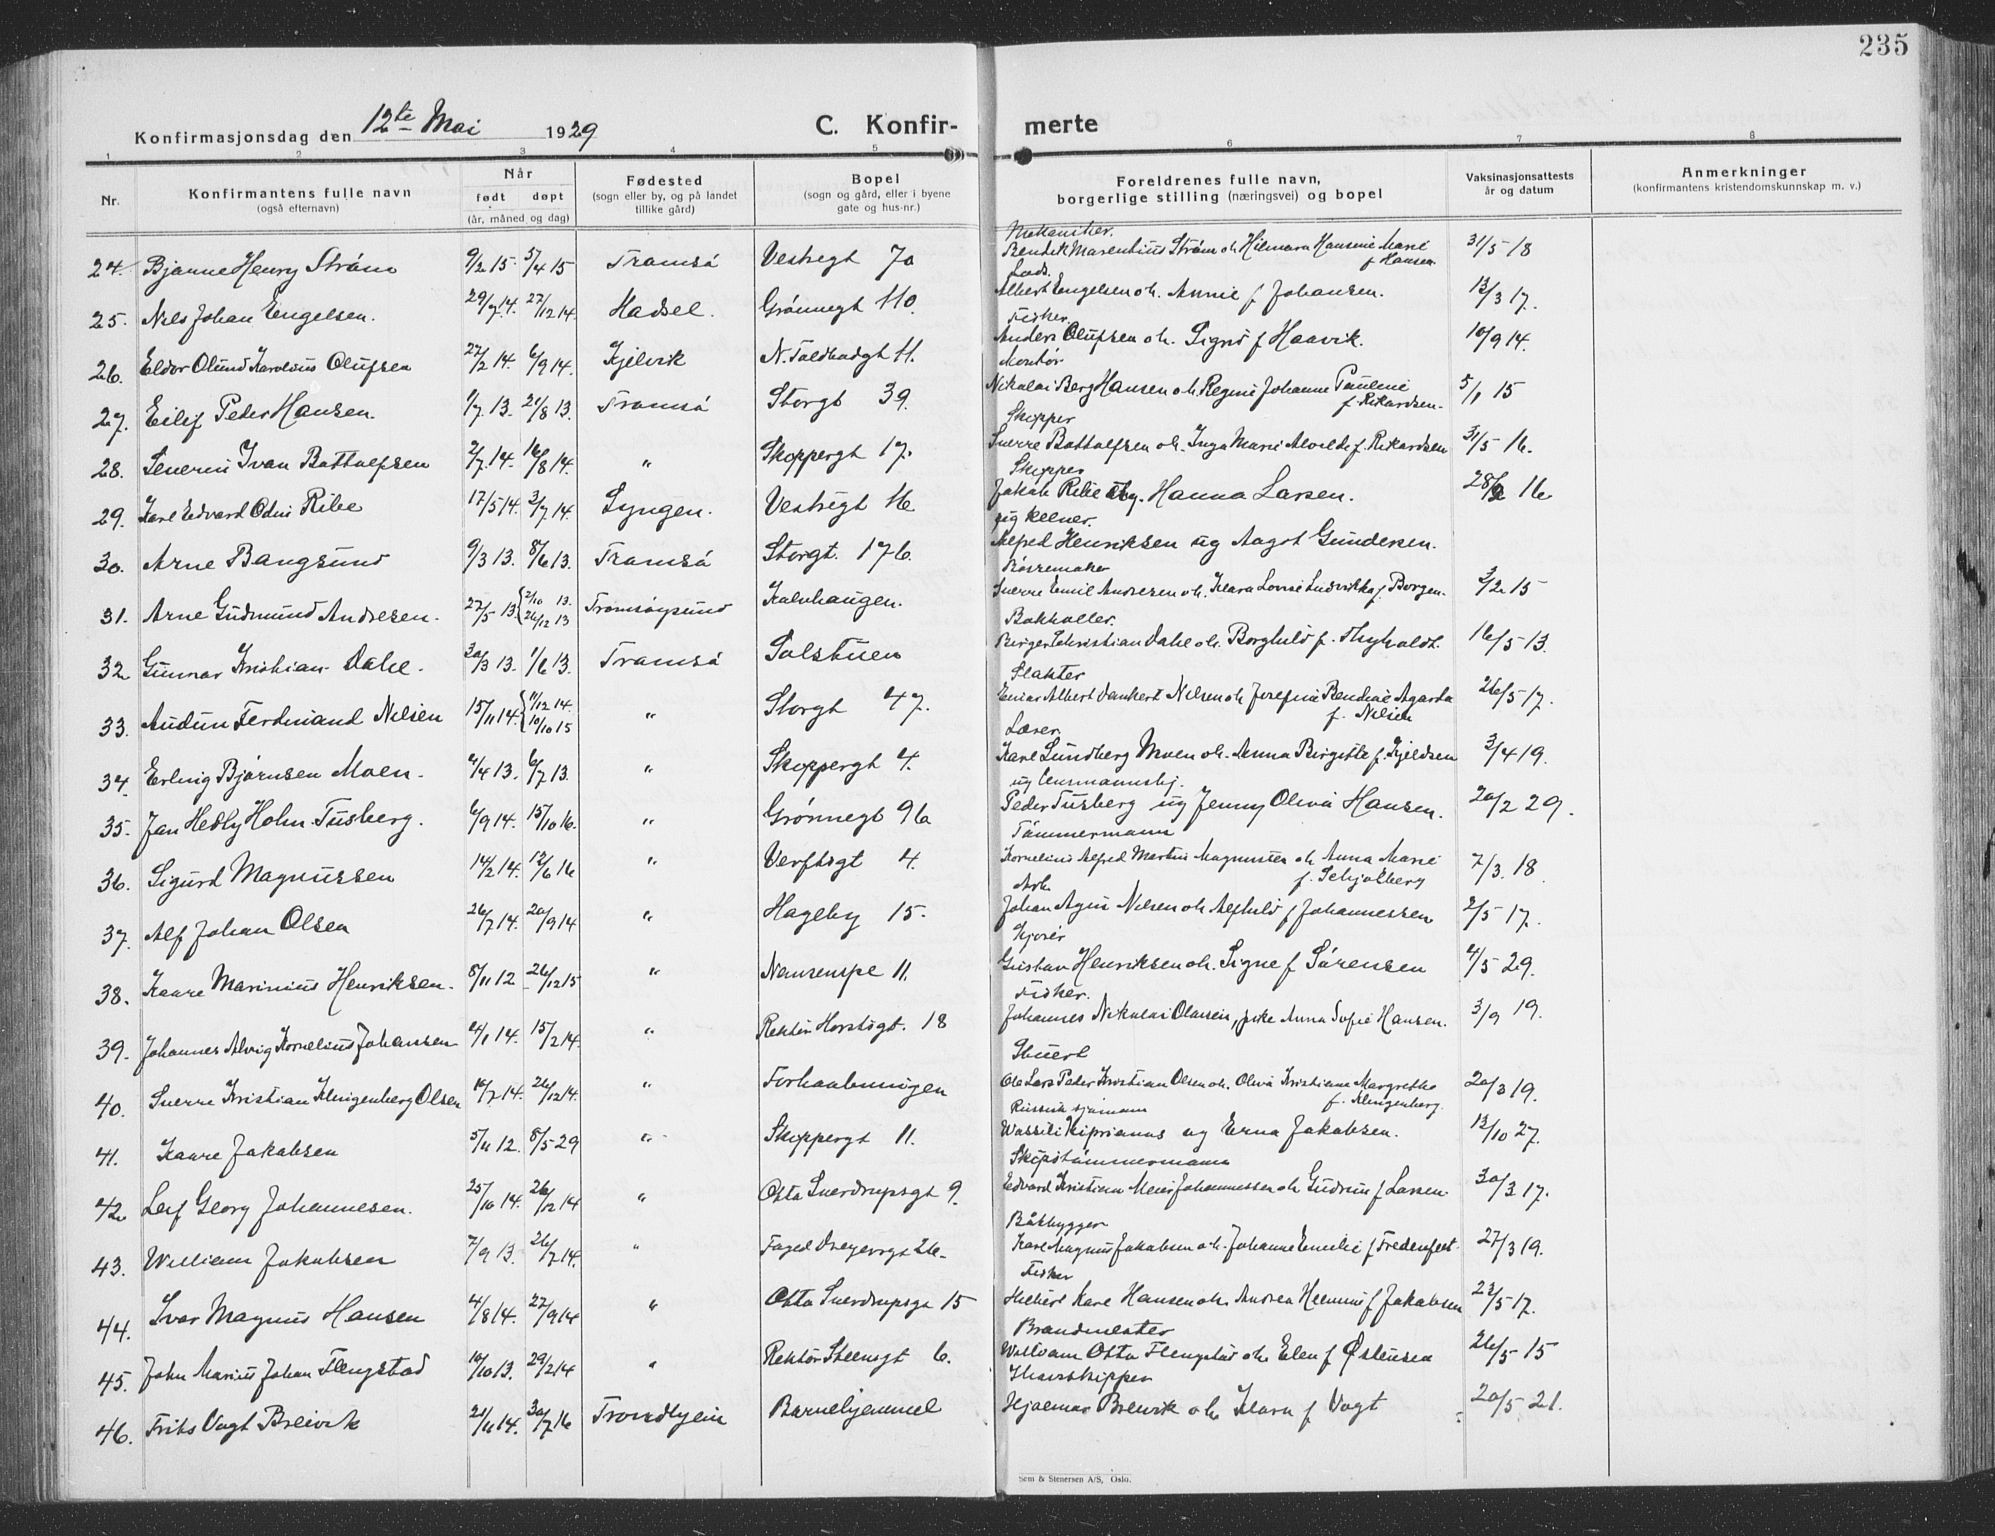 235
Konfirmasjonsdag den 12te Mai 1929 C. Konfir- merte
1 2 3 4 5 6 7 8
Nr. Konfirmantens fulle navn (også efternavn) Når født døpt (år, måned og dag) Fødested (sogn eller by, og på landet tillike gård) Bopel (sogn og gård, eller i byene gate og hus-nr.) Foreldrenes fulle navn, borgerlige stilling (næringsvei) og bopel Vaksinasjonsattests år og datum Anmerkninger (konfirmantens kristendomskunnskap m. v.)
Mekaniker.
24. Bjarne Henry Strøm 9/2 15. 5/4 15 Tromsø Vestregt 7a Bendik Marentius Strøm oh. Hilmara Hansine Marie f Hansen 31/5 18
Lods.
25. Nils Johan Engelsen. 29/7 14. 27/12 14. Hadsel. Grønnegt 110. Albert Engelsen oh. Annie f Johansen. 13/3 17.
Fisker.
26. Eldor Olund Karolius Olufsen 27/2 14. 6/9 14. Kjelvik N. Toldbodgt 11. Anders Olufsen oh. Signe f Haavik. 10/9 14.
Montør
27. Eilif Peder Hansen. 1/7 13. 21/8 13. Tromsø Storgt 39. Nikolai Berg Hansen oh. Regine Johanne Pauline f. Rikardsen. 5/1 15
Skipper
28. Severin Ivan Bottolfsen 2/7 14. 16/8 14. " Skippergt 17. Sverre Bottolfsen oh. Inga Marie Alvilde f. Rikardsen 31/5 16.
Skipper
29. Karl Edvard Odin Ribe 17/5 14. 3/7 14. Lyngen. Vestregt 16 Jakob Ribe og. Hanna Larsen. 28/2 16
ug kelner.
30. Arne Bangsund 9/3 13. 8/6 13. Tromsø Storgt. 176. Alfred Henriksen ug Aagot Gundersen.
Børsemaker
31. Arne Gudmund Andresen. 27/5 13. {2/10 13. 26/12 13 Tromsøysund Kalvhaugen. Sverre Emil Andresen oh. Klara Lovise Ludvikka f. Borgen. 3/2 15
Bokholler.
32 Gunnar Kristian Dahl. 30/3 13. 1/6 13. Tromsø Solstuen Birger Christian Dahl oh. Borghild f. Thyholdt. 16/5 13.
Slakter
33. Audun Ferdinand Nilsen 15/11 14. {11/12 14. 10/10 15 " Storgt 47. Einar Albert Dankert Nilsen oh Josefine Bendine Agarda f. Nilsen 26/5 17.
Lærer.
34. Erling Bjørnsen Moen. 4/4 13. 6/7 13. " Skippergt 4. Karl Lundberg Moen oh. Anna Birgitte f. Kjeldsen 3/4 19.
ug lensmannsbj.
35. Jan Hedly Holm Tusberg. 6/9 14. 15/10 16. " Grønnegt 96 Peder Tusberg ug Jenny Oliva Hansen. 20/2 29.
Tømmermann
36. Sigurd Magnussen 14/2 14. 12/6 16 " Verftsgt 4. Kornelius Alfred Martin Magnussen oh Anna Marie f. Schjølberg 7/3. 18
Arb
37. Alf Johan Olsen 26/7 14. 20/9 14 " Hageby 15. Johan Agin Nilsen oh Alfhild f Johannessen 2/5 17.
Kjører
38. Kaare Marinius Henriksen. 8/11 12 26/12 15 " Nansenspl 11. Gustav Henriksen oh. Signe f Sørensen 4/5 29.
Fisker.
39. Johannes Alvig Kornelius Johansen 4/1 14. 15/2 14. " Rektor Horstsgt. 18 Johannes Nikolai Olausen, pike Anna Sofie Hansen. 3/9 19.
Stuert
40. Sverre Kristian Klingenberg Olsen 16/7 14. 26/12 14. " Forhaabningen Ole Lars Peder Kristian Olsen oh. Oliva Kristiane Margrethe f. Klingenberg. 20/3 19.
Russisk sjømann
41. Kaare Jakobsen 5/11 12. 8/5 29 " Skippergt 11. Wassili Kiprianus ug Erna Jakobsen. 13/10 27.
Skipstømmermann
42 Leif Georg Johannesen. 25/10 14. 26/12 14 " Otto Sverdrupsgt 9. Edvard Kristian Meier Johannessen oh Gudrun f Larsen 30/3 17.
Båtbygger
43. William Jakobsen 7/9 13. 26/7 14. " Foged Dreyersgt 26. Karl Magnus Jakobsen oh. Johanne Emelie f Fredenfelt. 27/3 19.
Fisker
44. Ivar Magnus Hansen 4/8 14. 27/9 14 " Otto Sverdrupsgt 15 Hilbert Karl Hansen oh. Andrea Hemmine f Jakobsen 22/5 17.
Brandmester
45. John Marius Johan Flengstad 10/10 13. 29/2 14 " Rektor Steensgt 6. William Otto Flengstad oh Elen f Østensen 26/5 15
Havskipper
46. Frits Vogt Breivik 21/11 14. 30/7 16 Trondhjem Barnehjemmet Hjalmar Breivik oh Klara f Vogt 20/5 21.
Sem & Stenersen A/S, Oslo.